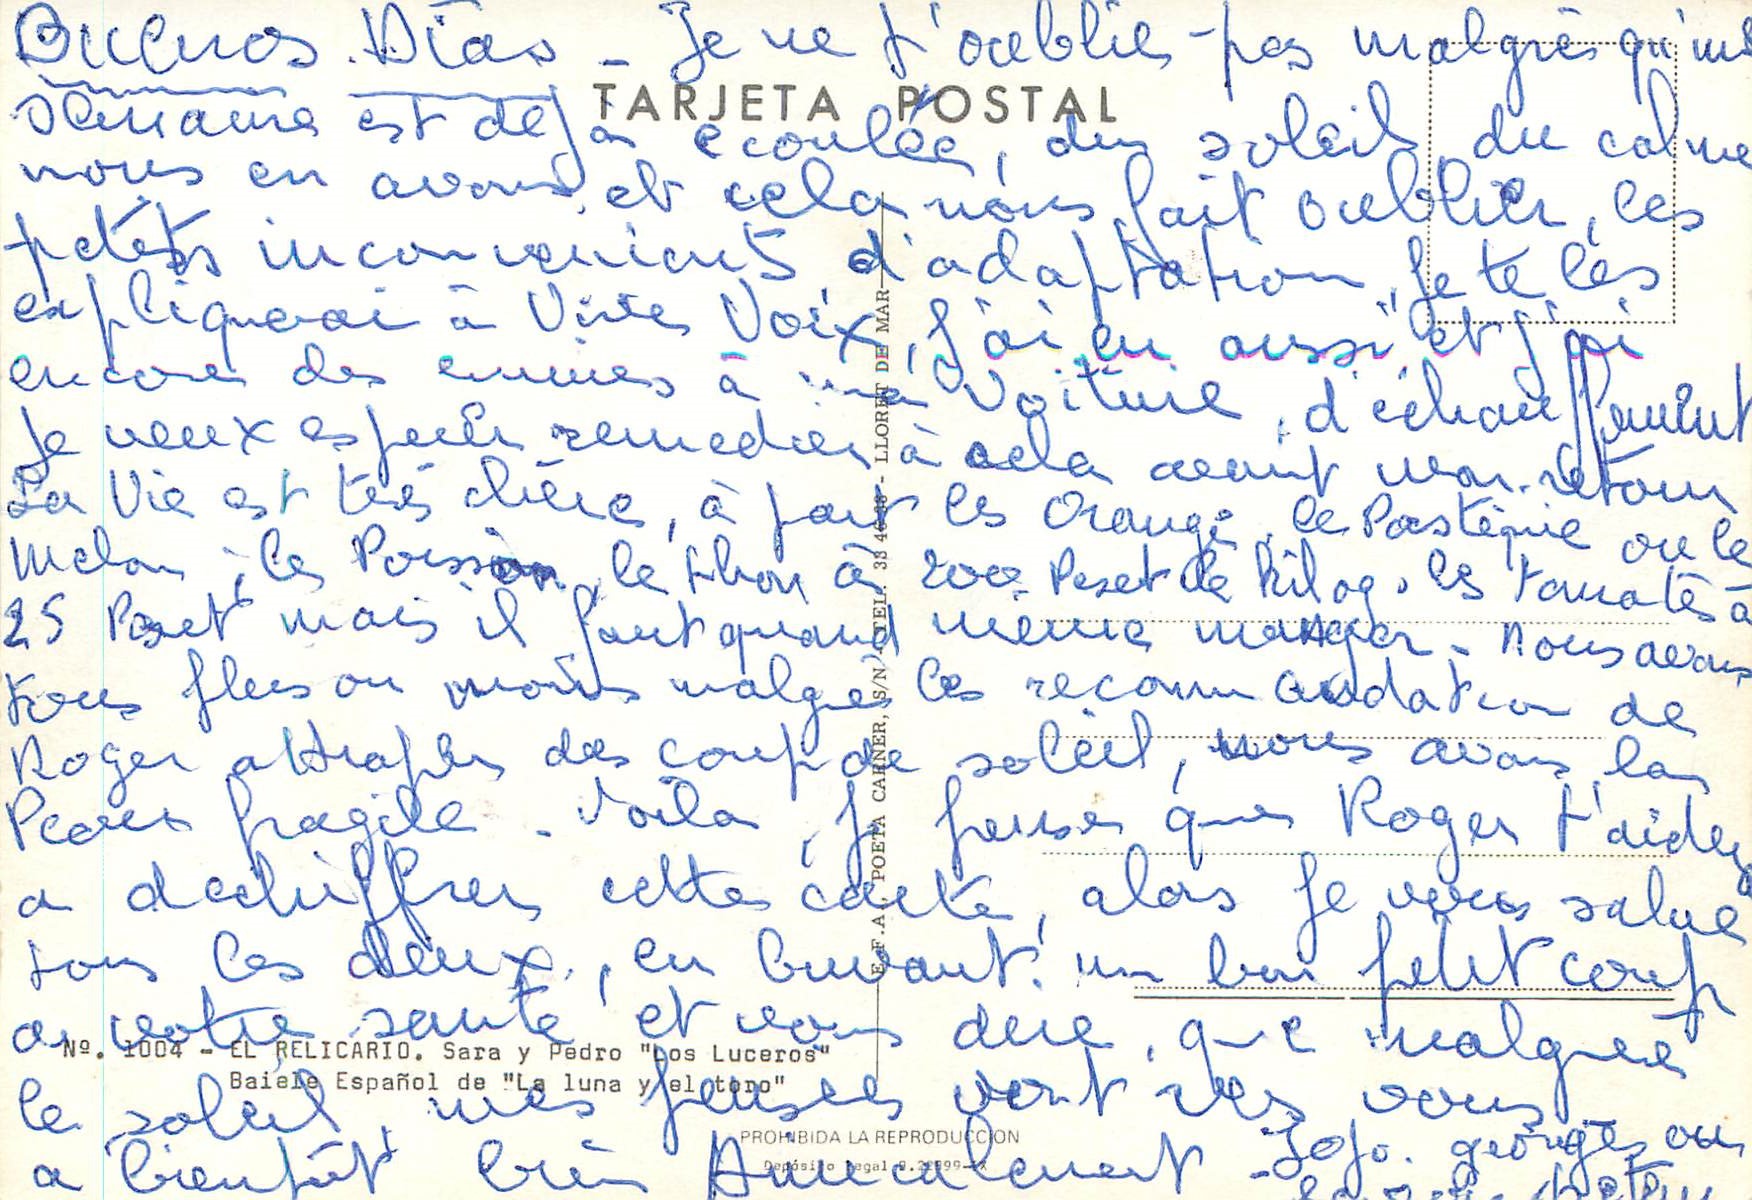 Buenos Días - Je ne t'oublie pas malgrès qu'une
TARJETA POSTAL
semaine est déjà écoulée, du soleil, du calme
nous en avons, et cela nous fait oublier, les
petits inconvenients d'adaptation, Je te les
expliquerai à Vive Voix, J'ai eu aussi, et j'ai
encore des ennuies à ma Voiture, d'échauffement
Je veux espérer remedier à cela avant mon retour
La Vie est très chère, à part les Orange, le Pastèque ou le
Melon, les Poisson, le thon à 200 Peset le kilog. les tomates à
25 Peset mais il faut quand même manger - Nous avons
tous plus ou moins malgres les recommandation de
Roger attraper des coup de soleil, nous avons la
Peau fragile - Voila, je pense que Roger t'aidera
a dechiffrer cette carte, alors Je vous salue
tous les deux, en buvant un bon petit coup
a votre santé et vous dire, que malgrée
le soleil, mes pensées vont vers vous -
a bientôt bien Amicalement - Jojo. georges ou
E.F.A. POETA CARNER, S/N - TEL. 33 - LLORET DE MAR
Nº. 1004 - EL RELICARIO. Sara y Pedro "Los Luceros"
Baiele Español de "La luna y el toro"
PROHIBIDA LA REPRODUCCION
Depósito legal